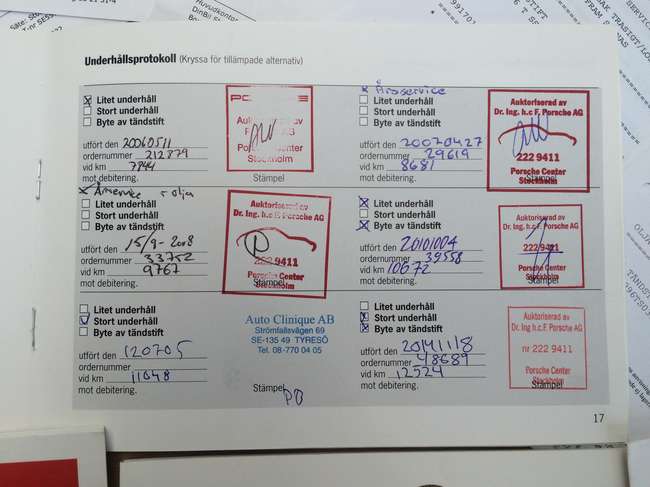 Underhållsprotokoll (Kryssa för tillämpade alternativ)
Litet underhåll
Stort underhåll
Byte av tändstift
utfört den 20060511
ordernummer 212879
vid km 7844
mot debitering.
Stockholm
Stämpel
Årsservice
Litet underhåll
Stort underhåll
Byte av tändstift
utfört den 20070427
ordernummer 29619
vid km 8681
mot debitering.
Auktoriserad av
Dr. Ing. h.c F. Porsche AG
222 9411
Porsche Center
Stockholm
Stämpel
Årsservice + olja
Litet underhåll
Stort underhåll
Byte av tändstift
utfört den 15/9-2008
ordernummer 33752
vid km 9767
mot debitering.
Auktoriserad av
Dr. Ing. h.c F. Porsche AG
222 9411
Porsche Center
Stockholm
Stämpel
Litet underhåll
Stort underhåll
Byte av tändstift
utfört den 20101004
ordernummer 39558
vid km 10672
mot debitering.
Auktoriserad av
Dr. Ing. h.c F. Porsche AG
222 9411
Porsche Center
Stockholm
Stämpel
Litet underhåll
Stort underhåll
Byte av tändstift
utfört den 120705
ordernummer
vid km 11648
mot debitering.
Auto Clinique AB
Strömfallsvägen 69
SE-135 49 TYRESÖ
Tel. 08-770 04 05
Stämpel
Litet underhåll
Stort underhåll
Byte av tändstift
utfört den 20141118
ordernummer 48689
vid km 12524
mot debitering.
Auktoriserad av
Dr. Ing h.c F. Porsche AG
nr 222 9411
Porsche Center
Stockholm
Stämpel
17